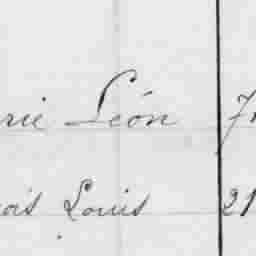 rie Léon 7
ois Louis 21